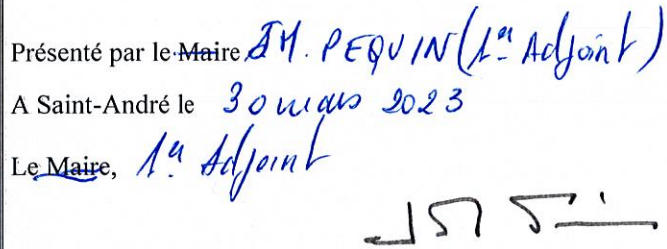 Présenté par le Maire JM. PEQUIN (1er Adjoint)
A Saint-André le 30 mars 2023
Le Maire, 1er Adjoint